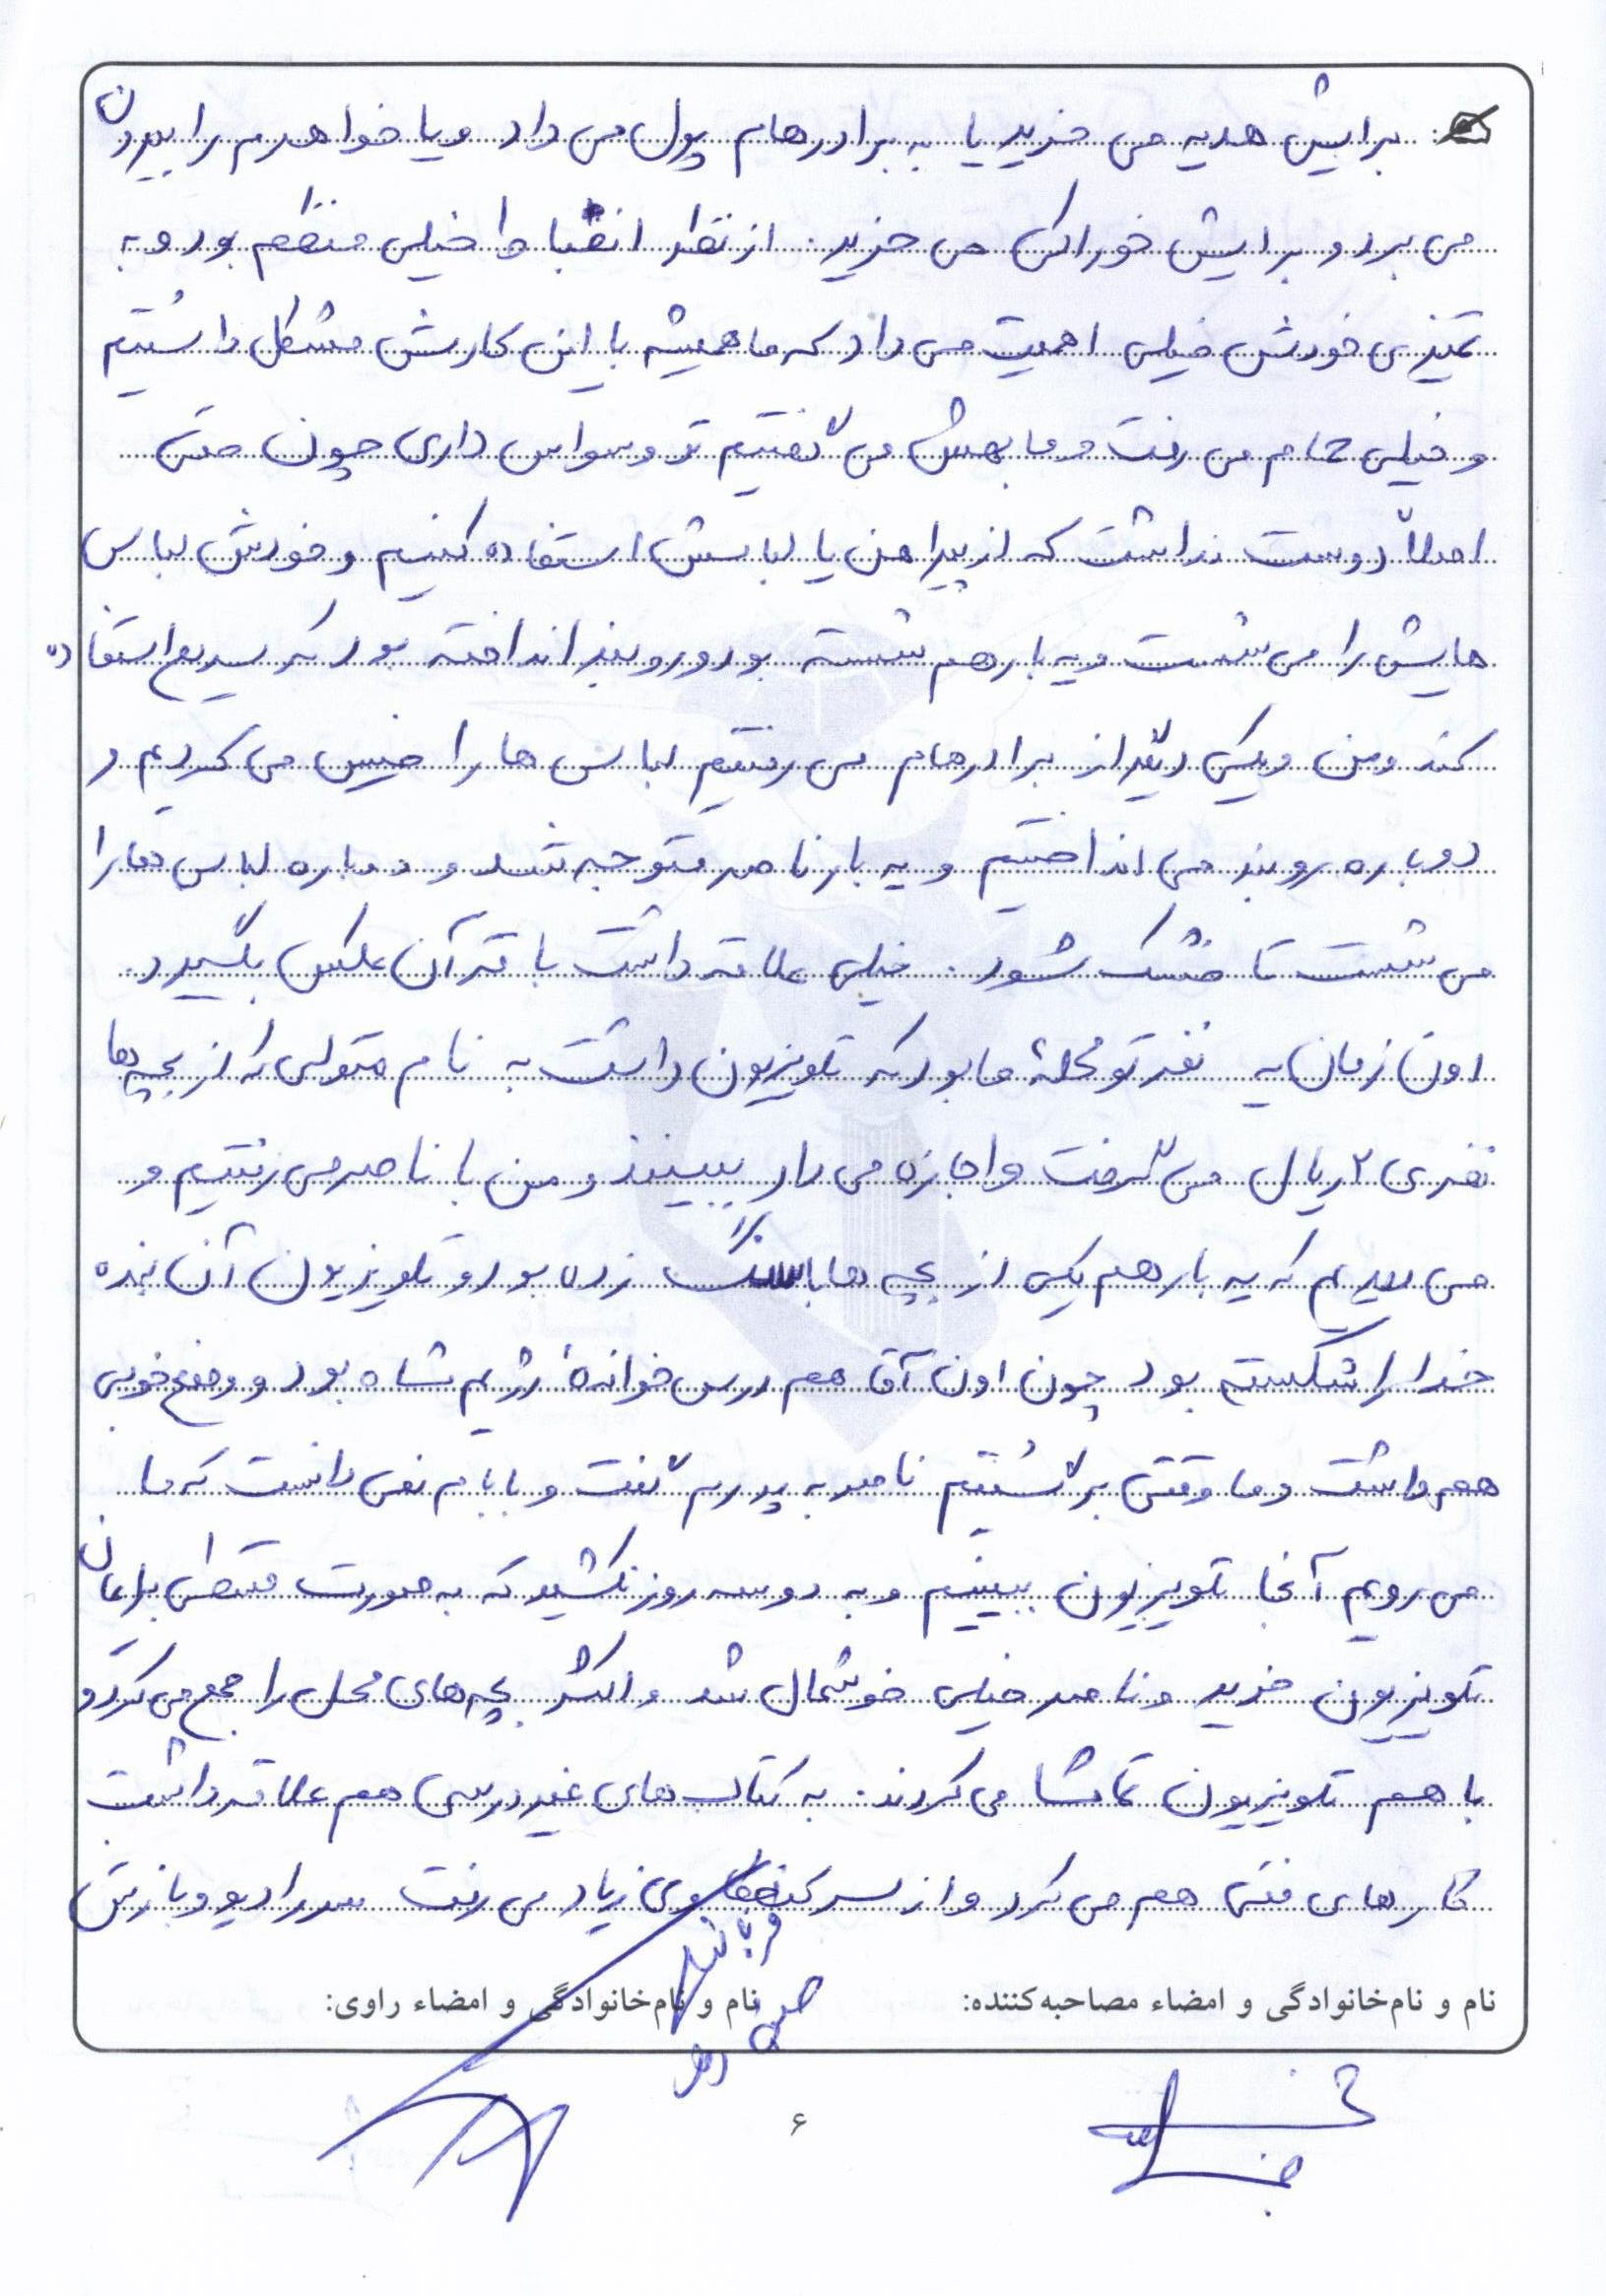 برایش هدیه می خرید یا به برادرهام پول می داد و یا خواهرم را بیرون
می برد و برایش خوراکی می خرید. از نظر انضباط خیلی منظم بود و به
تمیزی خودش خیلی اهمیت می داد که ما همیشه با این کارش مشکل داشتیم
و خیلی حمام می رفت و ما بهش می گفتیم تو وسواس داری چون حتی
اصلاً دوست نداشت که از پیراهن یا لباسش استفاده کنیم و خودش لباس
هایش را می شست و یه بار هم شسته بود و رو بند انداخته بود که سریع استفاده
کند و من و یکی دیگر از برادرهام می رفتیم لباس ها را خیس می کردیم و
دوباره رو بند می انداختیم و یه بار ناصر متوجه شد و دوباره لباس ها را
می شست تا خشک شود. خیلی علاقه داشت با قرآن عکس بگیرد.
اون زمان یه نفر تو محلۀ ما بود که تلویزیون داشت به نام متولی که از بچه ها
نفری ۲ ریال می گرفت و اجازه می داد ببینند و من با ناصر می رفتیم و
می دیدیم که یه بار هم یکی از بچه ها با سنگ زده بود و تلویزیون آن بنده
خدا را شکسته بود چون اون آقا هم درس خواندۀ رژیم شاه بود و وضع خوبی
هم داشت و ما وقتی برگشتیم ناصر به پدرم گفت و بابام نمی دانست که ما
می رویم آنجا تلویزیون ببینیم و به دو سه روز نکشید که به صورت قسطی برایمان
تلویزیون خرید و ناصر خیلی خوشحال شد و اکثر بچه های محل را جمع می کرد و
با هم تلویزیون تماشا می کردند. به کتاب های غیر درسی هم علاقه داشت
کارهای فنی هم می کرد و از سر کنجکاوی زیاد می رفت سر رادیو و بازش
نام و نام‌خانوادگی و امضاء مصاحبه‌کننده:
نام و نام‌خانوادگی و امضاء راوی:
۶